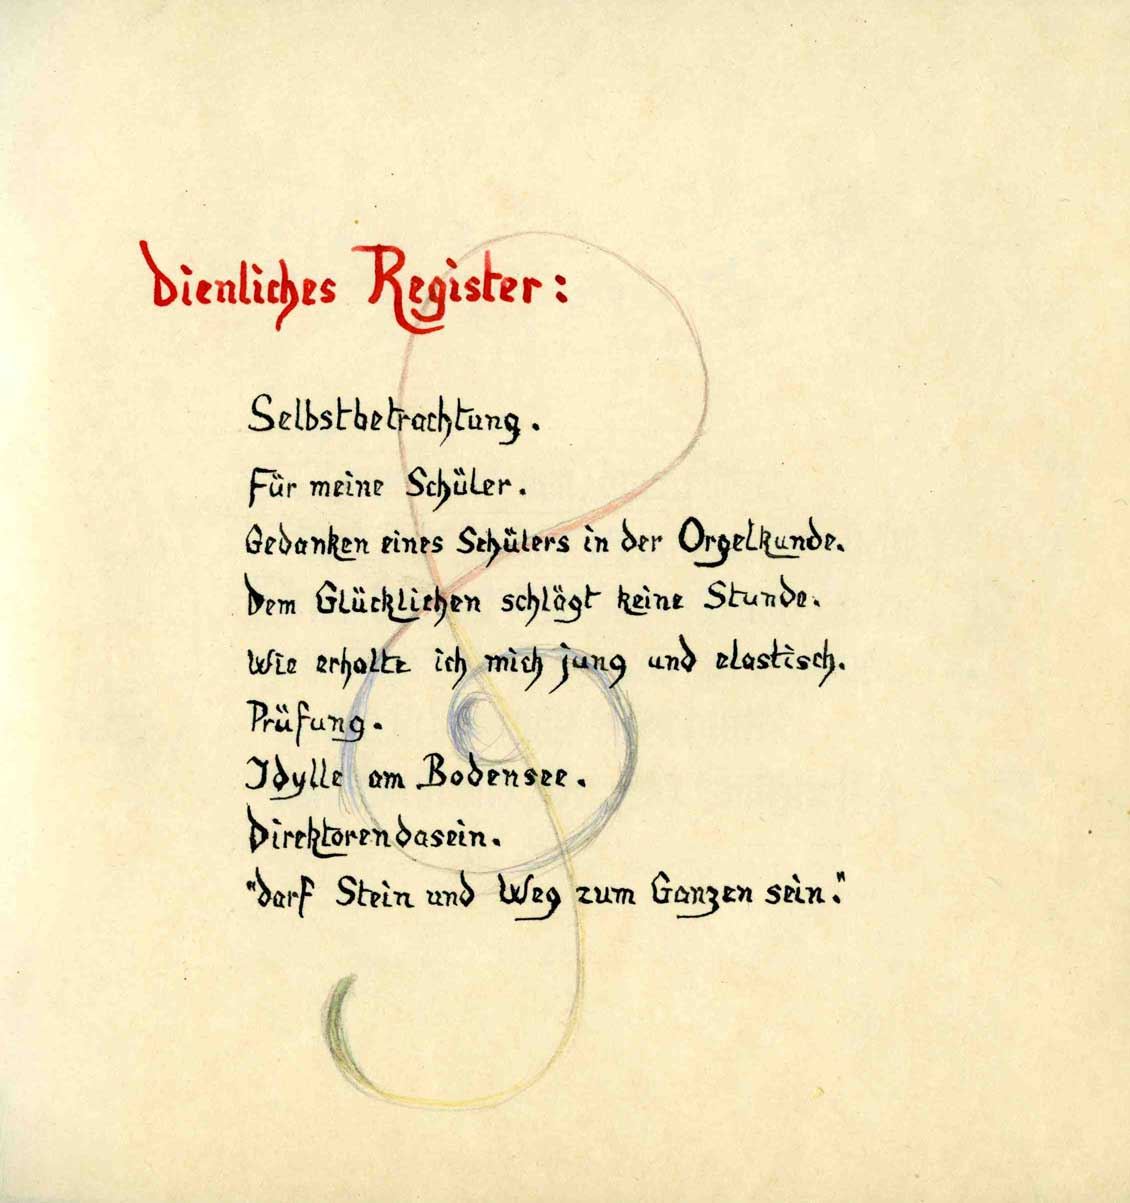 Dienliches Register:
Selbstbetrachtung.
Für meine Schüler.
Gedanken eines Schülers in der Orgelkunde.
Dem Glücklichen schlägt keine Stunde.
Wie erhalte ich mich jung und elastisch.
Prüfung.
Idylle am Bodensee.
Direktorendasein.
"darf Stein und Weg zum Ganzen sein."